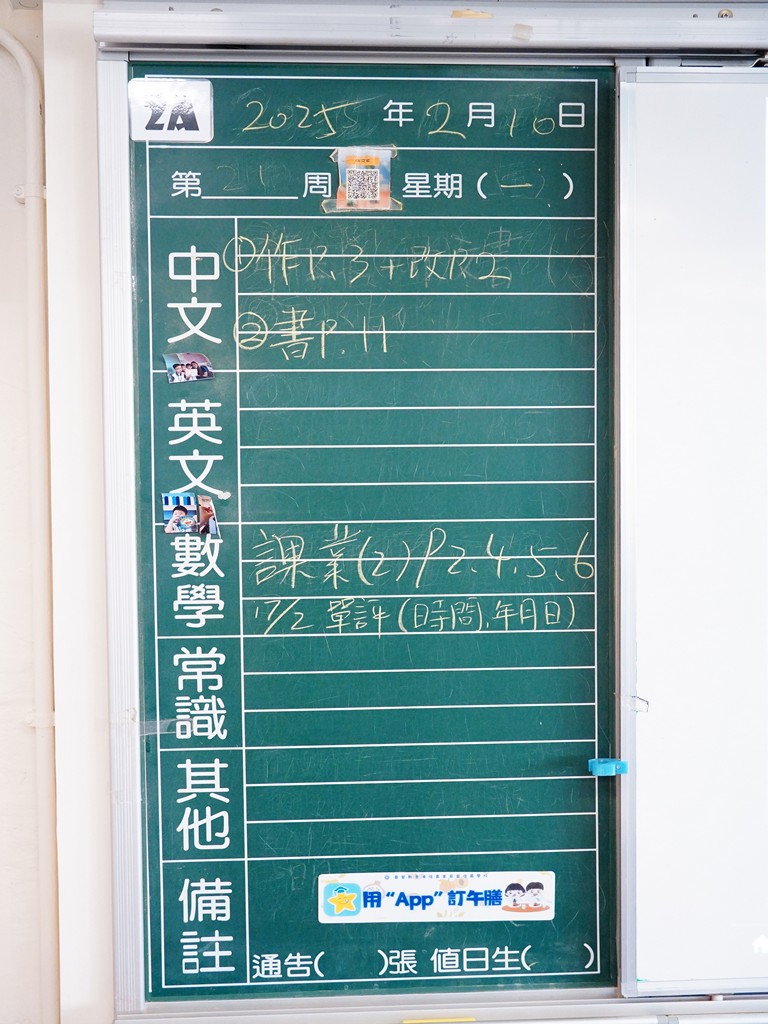 2A
2025年2月10日
第21周 星期(一)
中文
①作P.3+改P.2
②書P.11
英文
數學
課業(2)P2.4.5.6
17/2 單評(時間,年月日)
常識
其他
備註
用“App”訂午膳
通告( )張 值日生( )